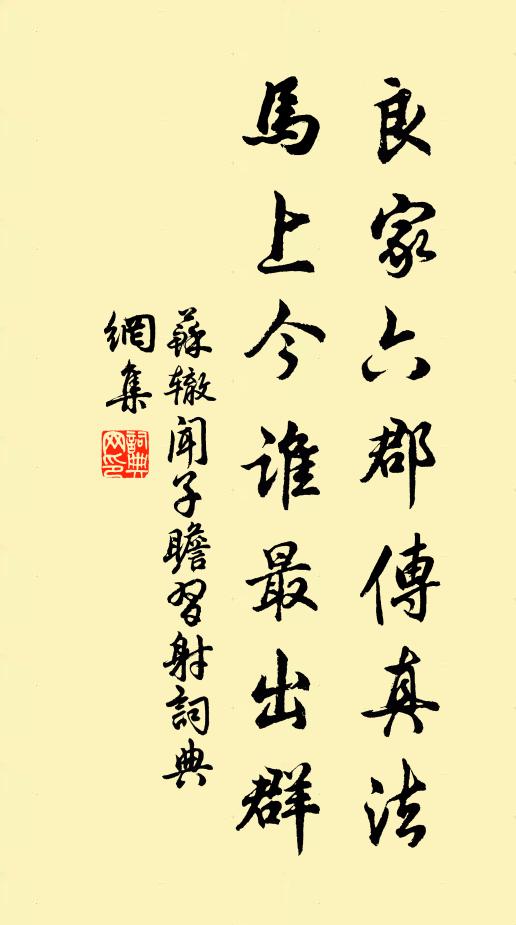 良家六郡傳真法
馬上今誰最出群
蘇轍闻子瞻習射詞典
網集
詞典
网印